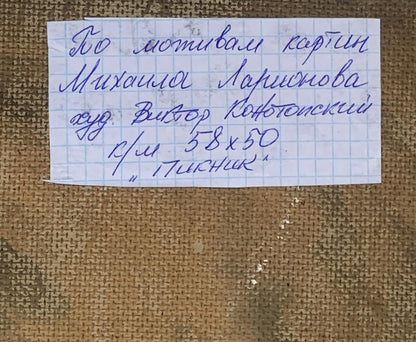 По мотивам картин
Михаила Ларионова
худ. Виктор Конотопский
к/м 58х50
"Пикник"